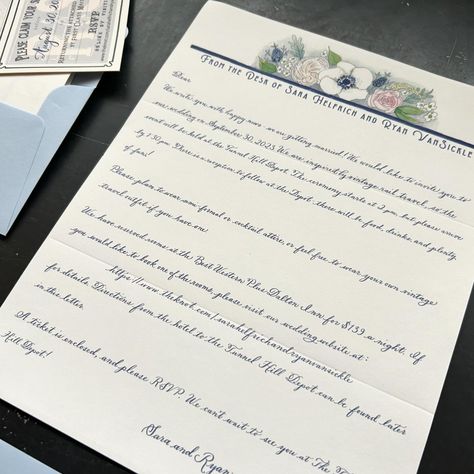 PLEASE CLAIM YOUR S
August 30, 20
BY RETURNING THE ATTACHED
BY FIRST CLASS
RSVP
FROM THE DESK OF SARA HELFRICH AND RYAN VANSICKLE
Dear
We write you with happy news: we are getting married! We would like to invite you to
our wedding on September 30, 2023. We are inspired by vintage rail travel, so the
event will be held at the Tunnel Hill Depot. The ceremony starts at 2 pm, but please arrive
by 1:30 pm. There is a reception to follow at the Depot: there will be food, drinks, and plenty
of fun!
Please plan to wear semi-formal or cocktail attire, or feel free to wear your own vintage
travel outfit if you have one!
We have reserved rooms at the Best Western Plus Dalton Inn for $139 a night. If
you would like to book one of the rooms, please visit our wedding website at:
https://www.theknot.com/sarahelfrichandryanvansickle
for details. Directions from the hotel to the Tunnel Hill Depot can be found later
in this letter.
A ticket is enclosed, and please RSVP. We can't wait to see you at The
Hill Depot!
Sara and Ryan